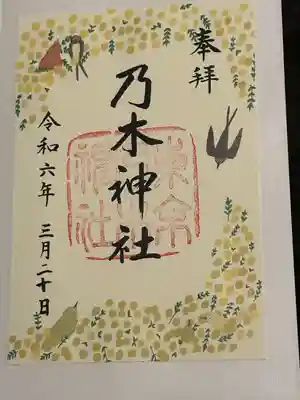 奉拝
乃木神社
令和六年 三月二十日